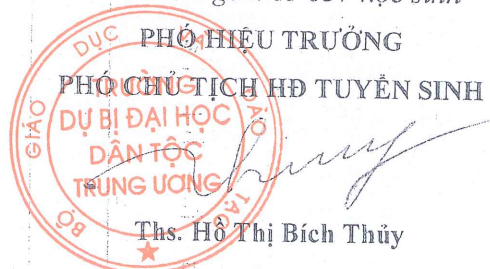 học sinh
PHÓ HIỆU TRƯỞNG
PHÓ CHỦ TỊCH HĐ TUYỂN SINH
BỘ GIÁO DỤC VÀ ĐÀO TẠO
TRƯỜNG
DỰ BỊ ĐẠI HỌC
DÂN TỘC
TRUNG ƯƠNG
Ths. Hồ Thị Bích Thủy